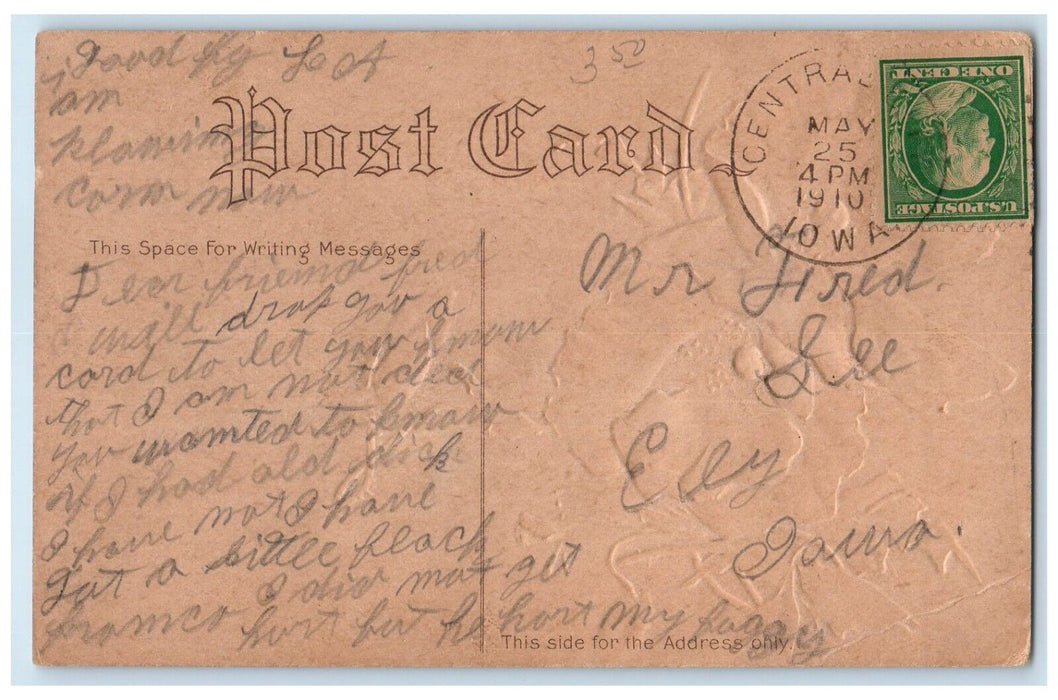 Good by L A
i am
planing
corn now
3 50
Post Card.
CENTRAL
MAY
25
4 PM
1910
IOWA
U.S. POSTAGE
ONE CENT
This Space For Writing Messages
Dear friend fred
I will drop you a
card to let you know
that I am not ded
you wanted to know
if I had old dick
I have not I have
Got a little black
bronco I did not get
hurt but he hort my buggy
Mr Fred.
Lee
Ely
Iowa.
This side for the Address only.